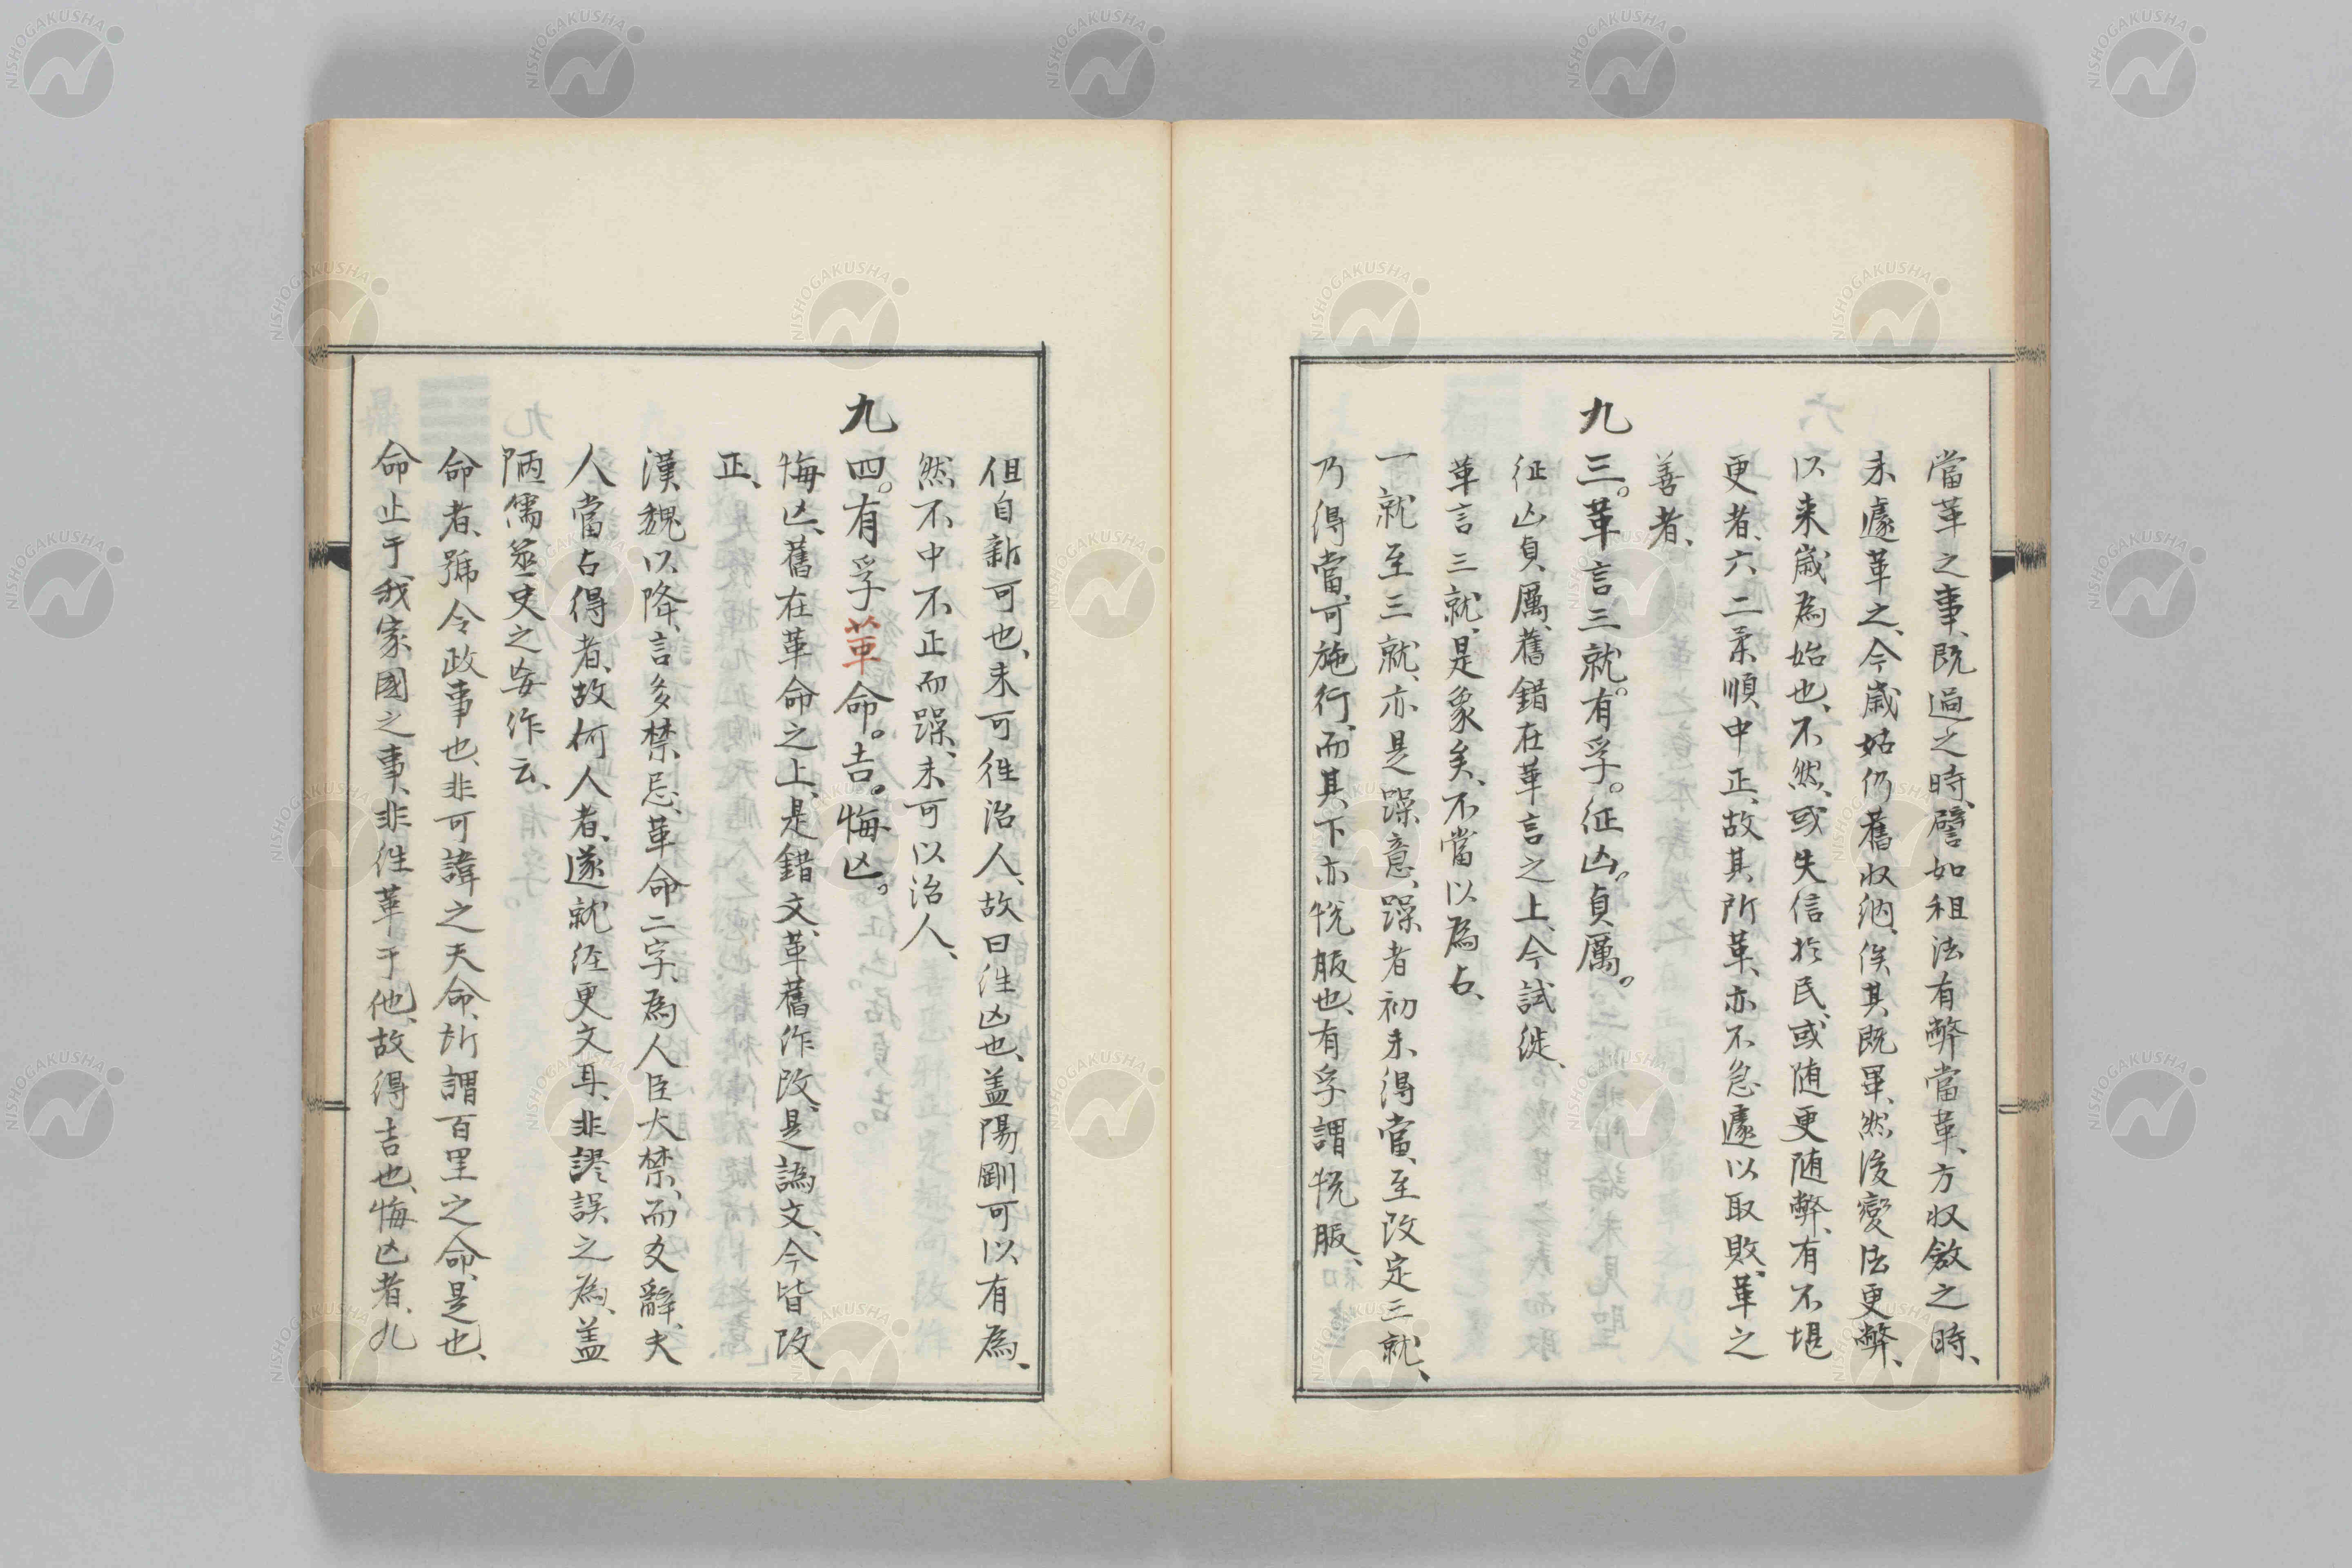 當革之事、既過之時、譬如租法有弊當革、方収斂之時、
未遽革之、今歳姑仍舊収納、俟其既畢、然後變法更弊、
以来歳為始也、不然、或失信於民、或随更随弊、有不堪
更者、六二柔順中正、故其所革、亦不急遽以取敗、革之
善者、
九三。革言三就。有孚。征凶。貞厲。
征凶貞厲、舊錯在革言之上、今試徙、
革言三就、是象矣、不當以為占、
一就至三就、亦是躁意、躁者初未得當、至改定三就、
乃得當、可施行、而其下亦悦服也、有孚謂悦服、
但自新可也、未可往治人、故曰往凶也、盖陽剛可以有為、
然不中不正而躁、未可以治人、
九四。有孚革命。吉。悔亡。
悔亡、舊在革命之上、是錯文、革舊作改、是譌文、今皆改
正、
漢魏以降、言多禁忌、革命二字、為人臣大禁、而爻辭、夫
人當占得者、故何人者、遂就經更文耳、非謬誤之為、盖
陋儒筮史之妄作云、
命者、號令政事也、非可諱之天命、所謂百里之命、是也、
命止于我家國之事、非往革于他、故得吉也、悔亡者、九
NISHOGAKUSHA